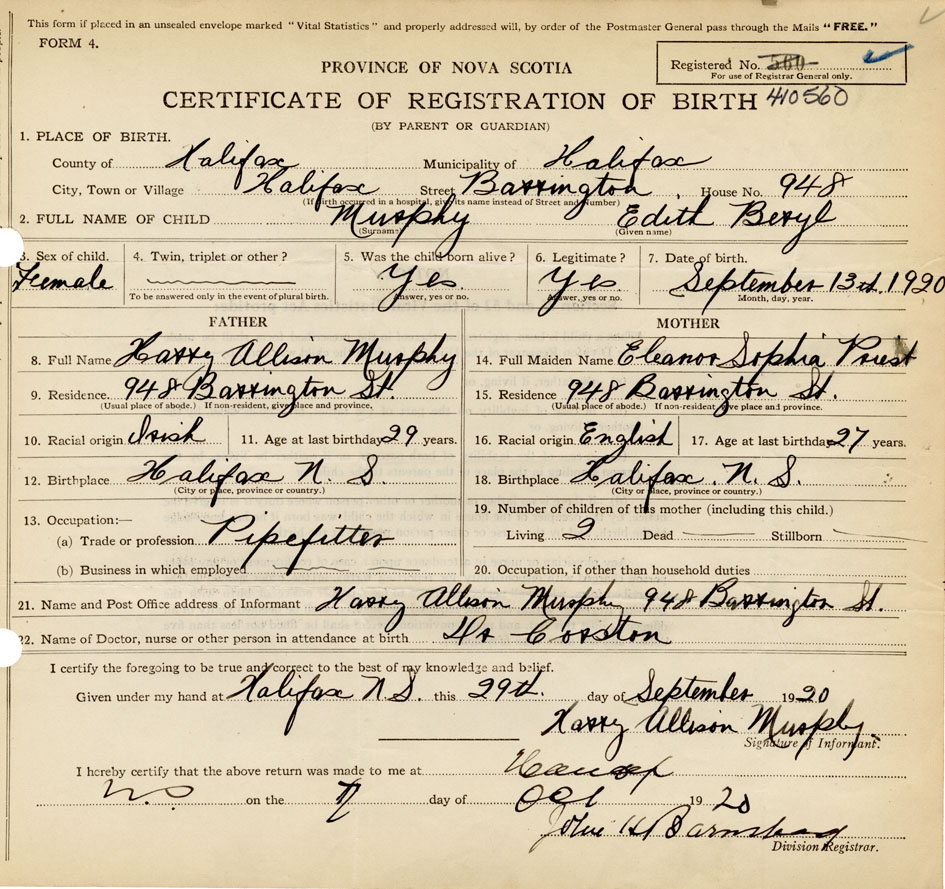 This form if placed in an unsealed envelope marked "Vital Statistics" and properly addressed will, by order of the Postmaster General pass through the Mails "FREE."
FORM 4.
Registered No. 560
For use of Registrar General only.
PROVINCE OF NOVA SCOTIA
CERTIFICATE OF REGISTRATION OF BIRTH 410560
(BY PARENT OR GUARDIAN)
1. PLACE OF BIRTH.
County of Halifax Municipality of Halifax
City, Town or Village Halifax Street Barrington House No. 948
(If birth occurred in a hospital, give its name instead of Street and Number)
2. FULL NAME OF CHILD Murphy Edith Beryl
(Surname) (Given name)
3. Sex of child. 4. Twin, triplet or other? 5. Was the child born alive? 6. Legitimate? 7. Date of birth.
Female Yes Yes September 13th. 1920
To be answered only in the event of plural birth. Answer, yes or no. Answer, yes or no. Month, day, year.
FATHER MOTHER
8. Full Name Harry Allison Murphy 14. Full Maiden Name Eleanor Sophia Priest
9. Residence. 948 Barrington St. 15. Residence 948 Barrington St.
(Usual place of abode.) If non-resident, give place and province. (Usual place of abode.) If non-resident, give place and province.
10. Racial origin Irish 11. Age at last birthday 29 years. 16. Racial origin English 17. Age at last birthday 27 years.
12. Birthplace Halifax N. S. 18. Birthplace Halifax. N. S.
(City or place, province or country.) (City or place, province or country.)
13. Occupation:— 19. Number of children of this mother (including this child.)
(a) Trade or profession Pipefitter Living 2 Dead Stillborn
(b) Business in which employed 20. Occupation, if other than household duties
21. Name and Post Office address of Informant Harry Allison Murphy 948 Barrington St.
22. Name of Doctor, nurse or other person in attendance at birth Dr Corston
I certify the foregoing to be true and correct to the best of my knowledge and belief.
Given under my hand at Halifax N.S. this 29th. day of September 1920
Harry Allison Murphy.
Signature of Informant.
I hereby certify that the above return was made to me at
N.S on the 7 day of Oct 1920
John H Barnstead
Division Registrar.